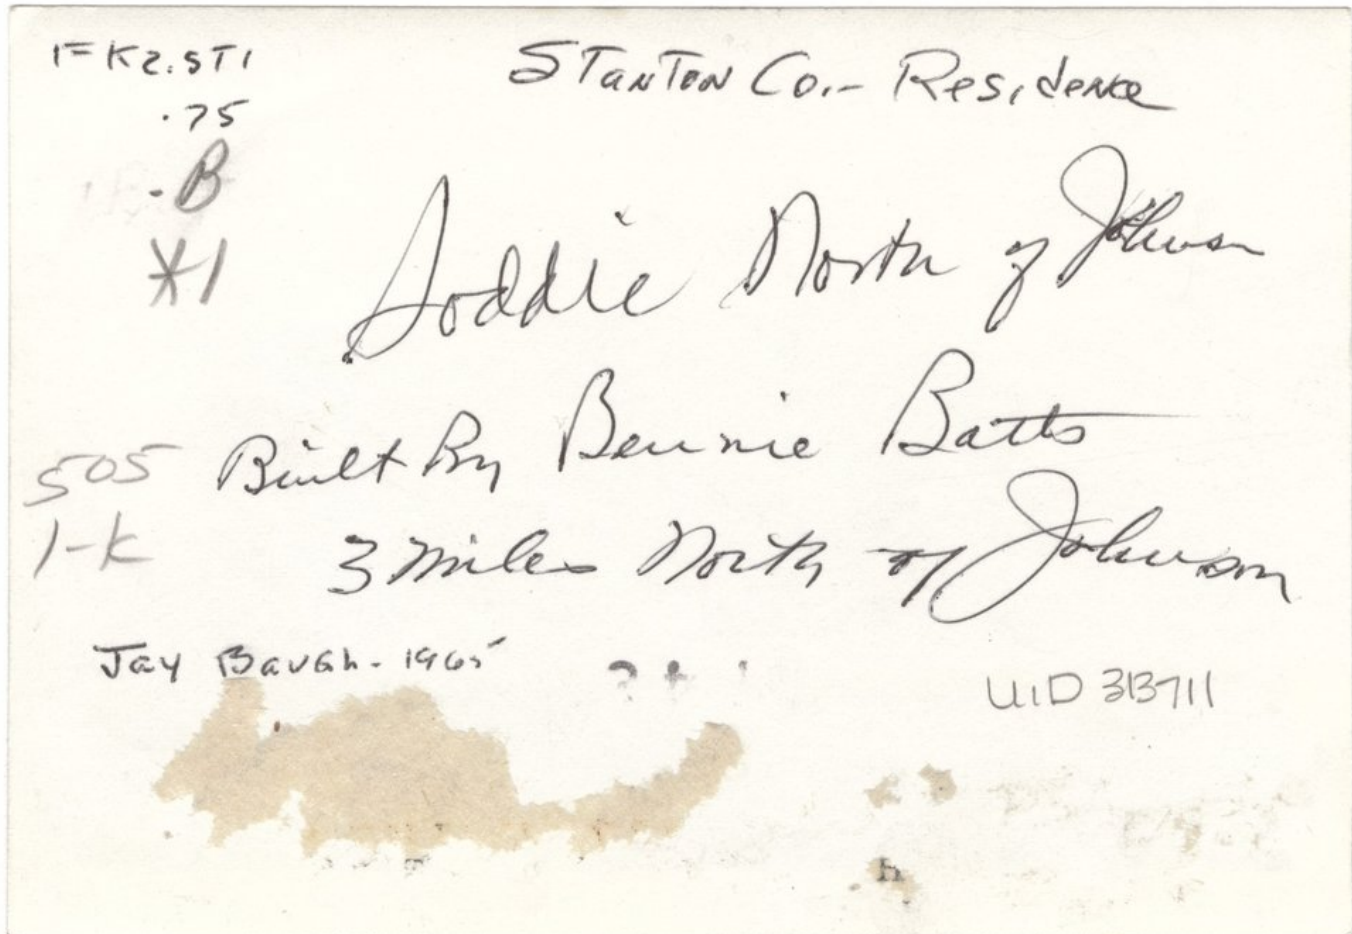 FK2.ST1 Stanton Co.- Residence
.75
.B
*1
Soddie North of Johnson
505 Built By Bennie Batts
1-K 3 miles North of Johnson
Jay Baugh - 1965
UID 313711
h